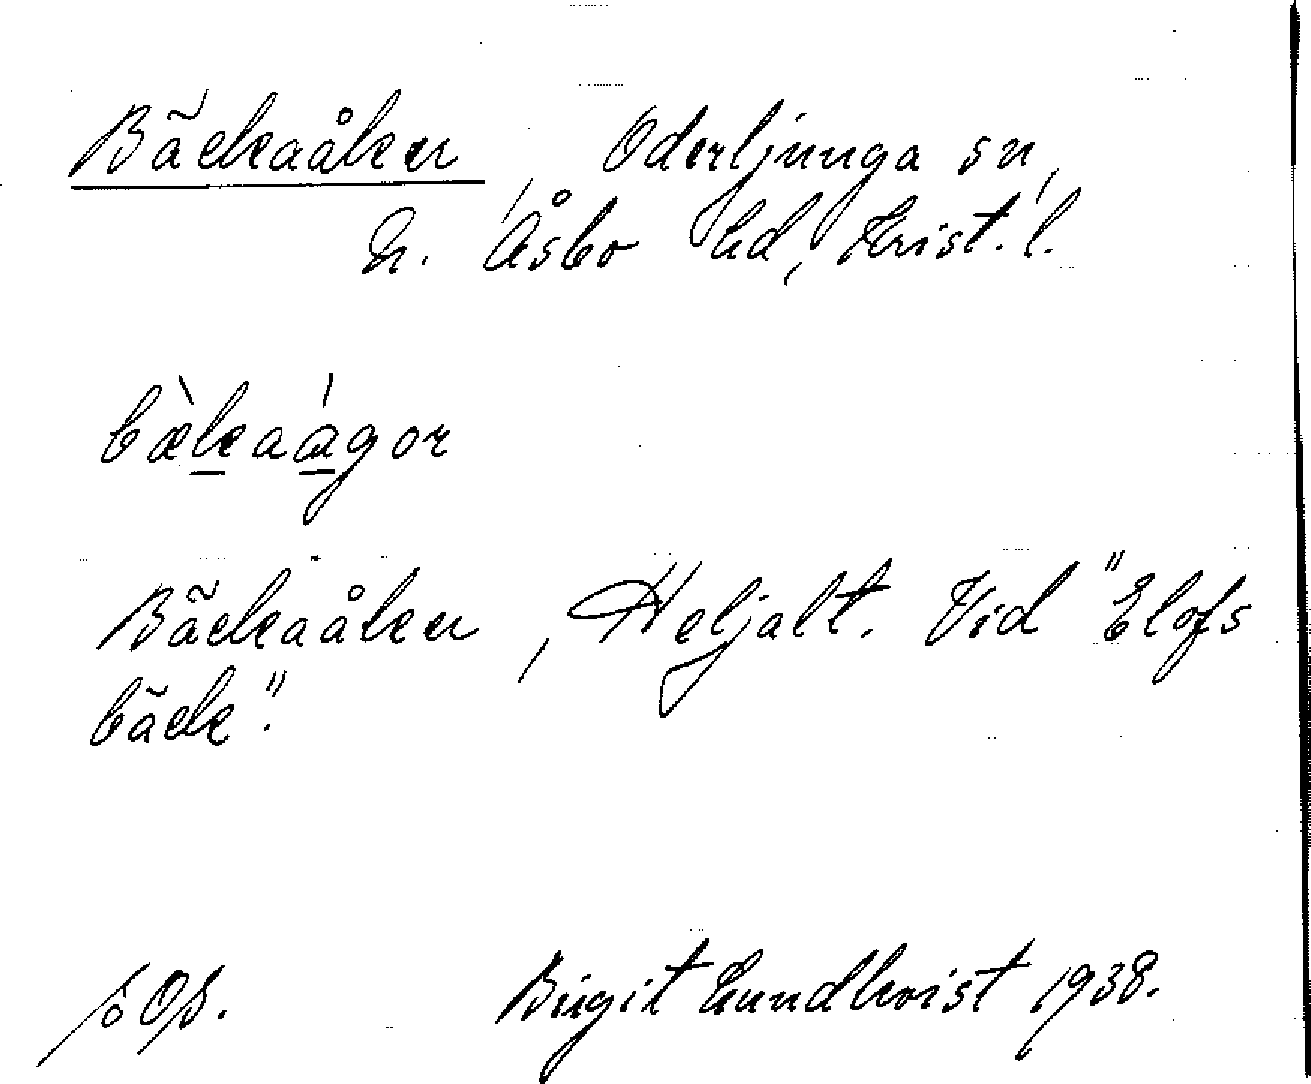 Bäckaåker, Oderljunga sn,
N. Åsbo hd, Krist. l.
bæ̀kaágor
Bäckaåker, Heljalt. Vid "Elofs
bäck".
Birgit Lundkvist 1938.